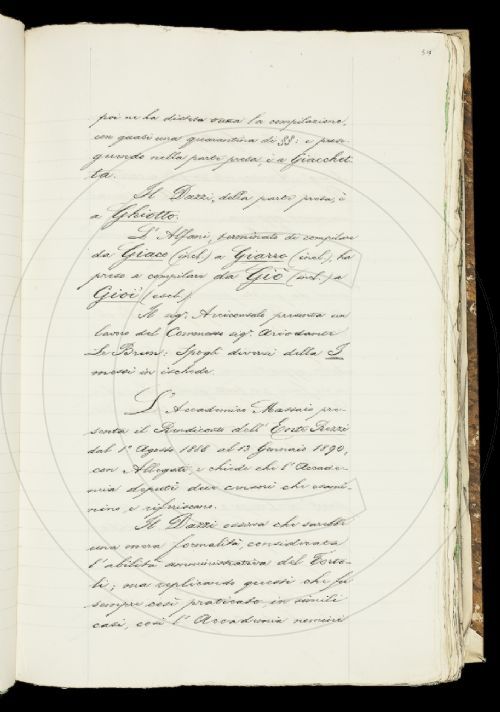 poi ne ha distesa ossa la compilazione,
con quasi una quarantina di §§: e prose-
guendo nella parte presa, è a Giacchet-
ta.
Il Dazzi, della parte presa, è
a Ghiotto.
L'Alfani, terminato di compilare
da Giaco (incl.) a Giarro (incl.), ha
preso a compilare da Giò (incl.) a
Gioi (escl.)
Il sig.r Arciconsolo presenta un
lavoro del Commesso sig.r
Le Brun: Spogli diversi della I
messi in ischede.
L'Accademico Massaio pre-
senta il Rendiconto dell'Ente Rezzi
dal 1° Agosto 1886 al 13 Gennaio 1890,
con Allegati, e chiede che l'Accade-
mia deputi due censori che esami-
nino e riferiscano.
Il Dazzi osserva che sarebbe
una mera formalità, considerata
l'abilità amministrativa del Torto-
li; ma replicando questi che fu
sempre così praticato in simili
casi, così l'Accademia nomini